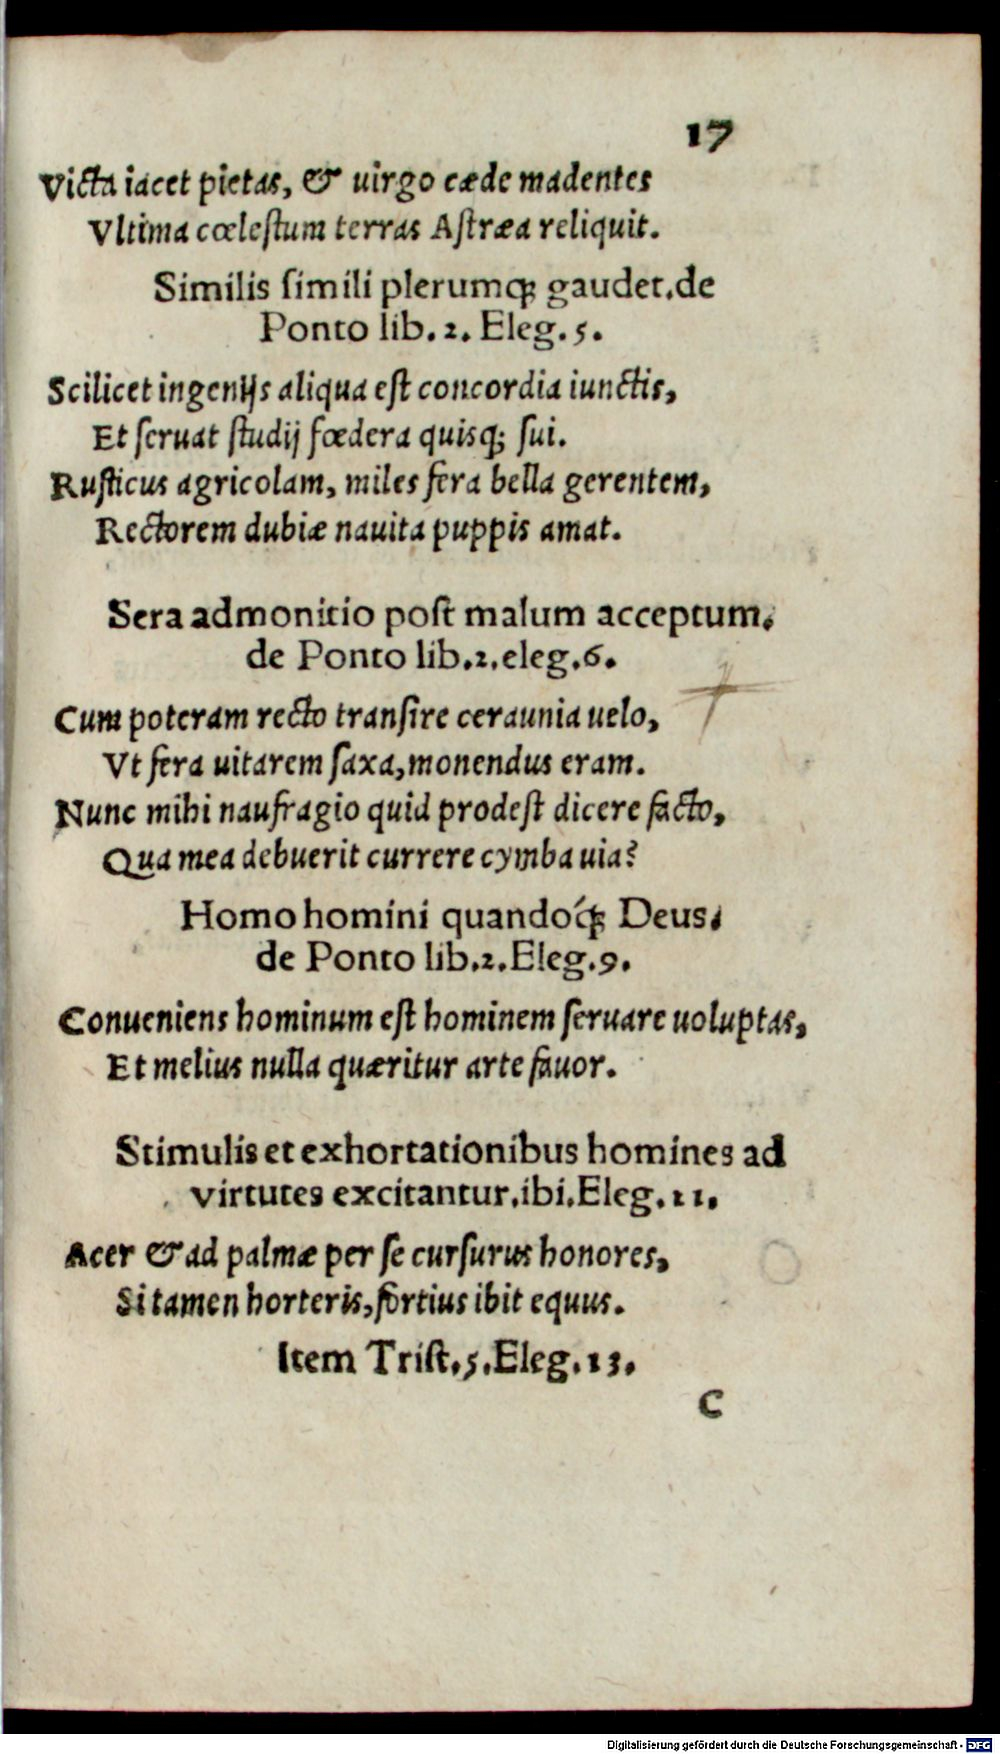 17
Victa iacet pietas, & uirgo cæde madentes
Vltima cœlestum terras Astræa reliquit.
Similis simili plerumq; gaudet. de
Ponto lib. 2. Eleg. 5.
Scilicet ingenijs aliqua est concordia iunctis,
Et seruat studij fœdera quisq; sui.
Rusticus agricolam, miles fera bella gerentem,
Rectorem dubiæ nauita puppis amat.
Sera admonitio post malum acceptum.
de Ponto lib. 2. eleg. 6.
Cum poteram recto transire ceraunia uelo,
Vt fera uitarem saxa, monendus eram.
Nunc mihi naufragio quid prodest dicere facto,
Qua mea debuerit currere cymba uia?
Homo homini quandoq́; Deus.
de Ponto lib. 2. Eleg. 9.
Conueniens hominum est hominem seruare uoluptas,
Et melius nulla quæritur arte fauor.
Stimulis et exhortationibus homines ad
virtutes excitantur. ibi. Eleg. 11.
Acer & ad palmæ per se cursurus honores,
Si tamen horteris, fortius ibit equus.
Item Trist. 5. Eleg. 13.
C
Digitalisierung gefördert durch die Deutsche Forschungsgemeinschaft - DFG